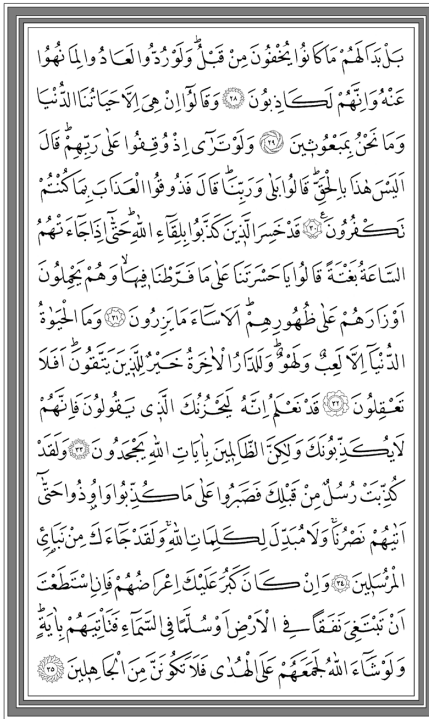 بَلْ بَدَا لَهُمْ مَا كَانُوا يُخْفُونَ مِنْ قَبْلُۜ وَلَوْ رُدُّوا لَعَادُوا لِمَا نُهُوا
عَنْهُ وَاِنَّهُمْ لَكَاذِبُونَ ﴿٢٨﴾ وَقَالُٓوا اِنْ هِيَ اِلَّا حَيَاتُنَا الدُّنْيَا
وَمَا نَحْنُ بِمَبْعُوثٖينَ ﴿٢٩﴾ وَلَوْ تَرٰٓى اِذْ وُقِفُوا عَلٰى رَبِّهِمْۜ قَالَ
اَلَيْسَ هٰذَا بِالْحَقِّۜ قَالُوا بَلٰى وَرَبِّنَاۜ قَالَ فَذُوقُوا الْعَذَابَ بِمَا كُنْتُمْ
تَكْفُرُونَ ﴿٣٠﴾ قَدْ خَسِرَ الَّذٖينَ كَذَّبُوا بِلِقَٓاءِ اللّٰهِۜ حَتّٰٓى اِذَا جَٓاءَتْهُمُ
السَّاعَةُ بَغْتَةً قَالُوا يَا حَسْرَتَنَا عَلٰى مَا فَرَّطْنَا فٖيهَاۙ وَهُمْ يَحْمِلُونَ
اَوْزَارَهُمْ عَلٰى ظُهُورِهِمْۜ اَلَا سَٓاءَ مَا يَزِرُونَ ﴿٣١﴾ وَمَا الْحَيٰوةُ
الدُّنْيَٓا اِلَّا لَعِبٌ وَلَهْوٌۜ وَلَلدَّارُ الْاٰخِرَةُ خَيْرٌ لِلَّذٖينَ يَتَّقُونَۜ اَفَلَا
تَعْقِلُونَ ﴿٣٢﴾ قَدْ نَعْلَمُ اِنَّهُ لَيَحْزُنُكَ الَّذٖي يَقُولُونَ فَاِنَّهُمْ
لَا يُكَذِّبُونَكَ وَلٰكِنَّ الظَّالِمٖينَ بِاٰيَاتِ اللّٰهِ يَجْحَدُونَ ﴿٣٣﴾ وَلَقَدْ
كُذِّبَتْ رُسُلٌ مِنْ قَبْلِكَ فَصَبَرُوا عَلٰى مَا كُذِّبُوا وَاُو۫ذُوا حَتّٰٓى
اَتٰيهُمْ نَصْرُنَاۚ وَلَا مُبَدِّلَ لِكَلِمَاتِ اللّٰهِۚ وَلَقَدْ جَٓاءَكَ مِنْ نَبَا۬ئِ
الْمُرْسَلٖينَ ﴿٣٤﴾ وَاِنْ كَانَ كَبُرَ عَلَيْكَ اِعْرَاضُهُمْ فَاِنِ اسْتَطَعْتَ
اَنْ تَبْتَغِيَ نَفَقاً فِي الْاَرْضِ اَوْ سُلَّماً فِي السَّمَٓاءِ فَتَأْتِيَهُمْ بِاٰيَةٍۜ
وَلَوْ شَٓاءَ اللّٰهُ لَجَمَعَهُمْ عَلَى الْهُدٰى فَلَا تَكُونَنَّ مِنَ الْجَاهِلٖينَ ﴿٣٥﴾